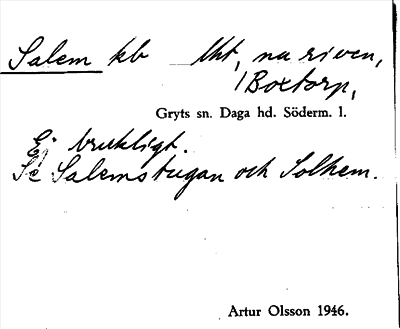 Salem kb lht, nu riven,
i Boxtorp,
Gryts sn. Daga hd. Söderm. l.
Ej brukligt.
Se Salemstugan och Solhem.
Artur Olsson 1946.